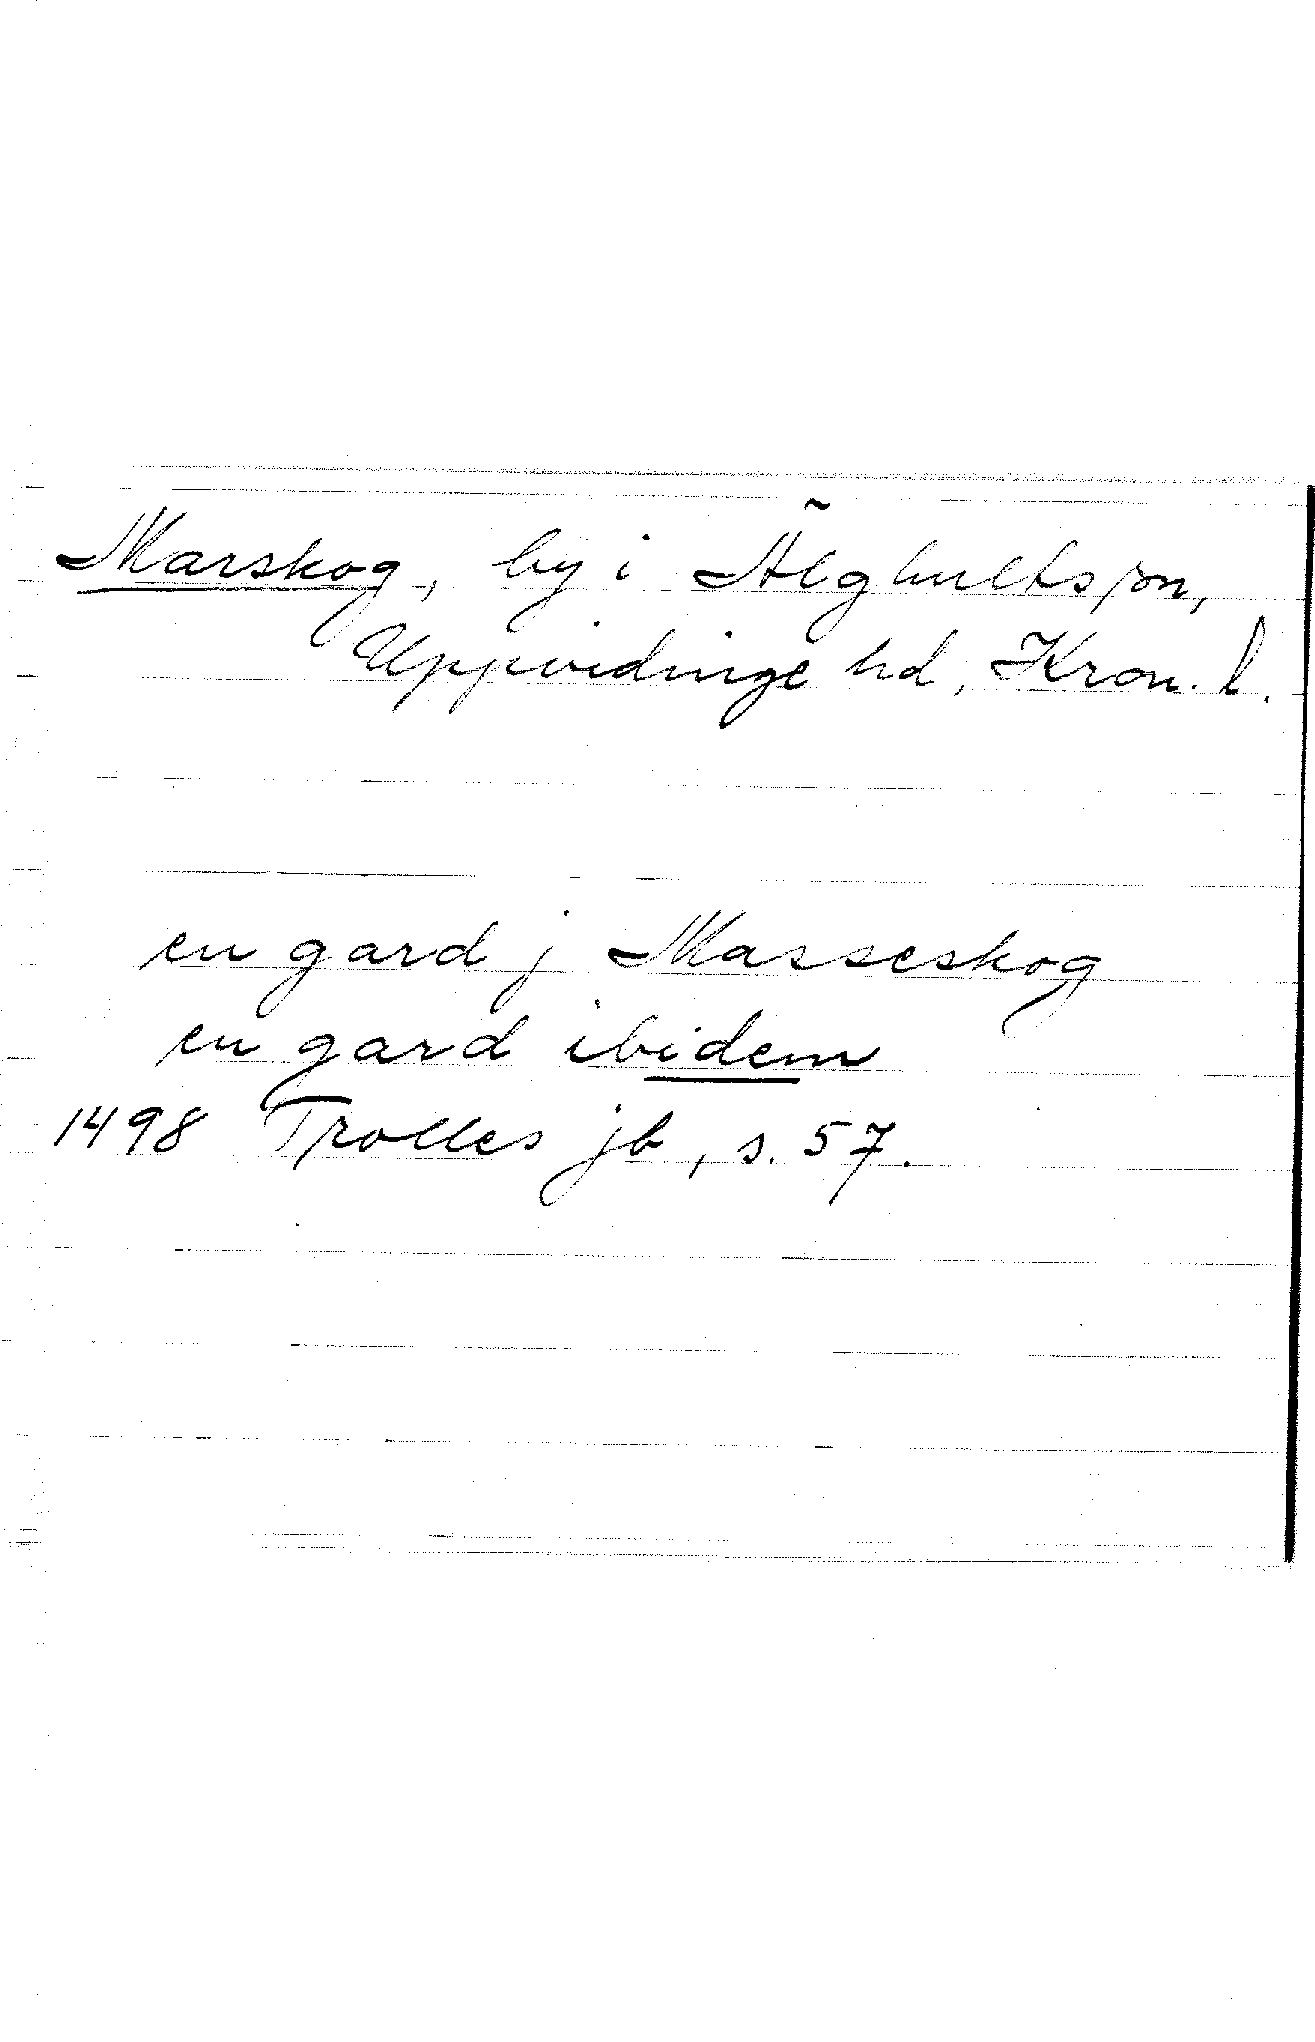 Marskog, by i Älghults sn,
Uppvidinge hd, Kron. l.
en gard j Masseskog
en gard ibidem
1498 Trolles jb, s. 57.